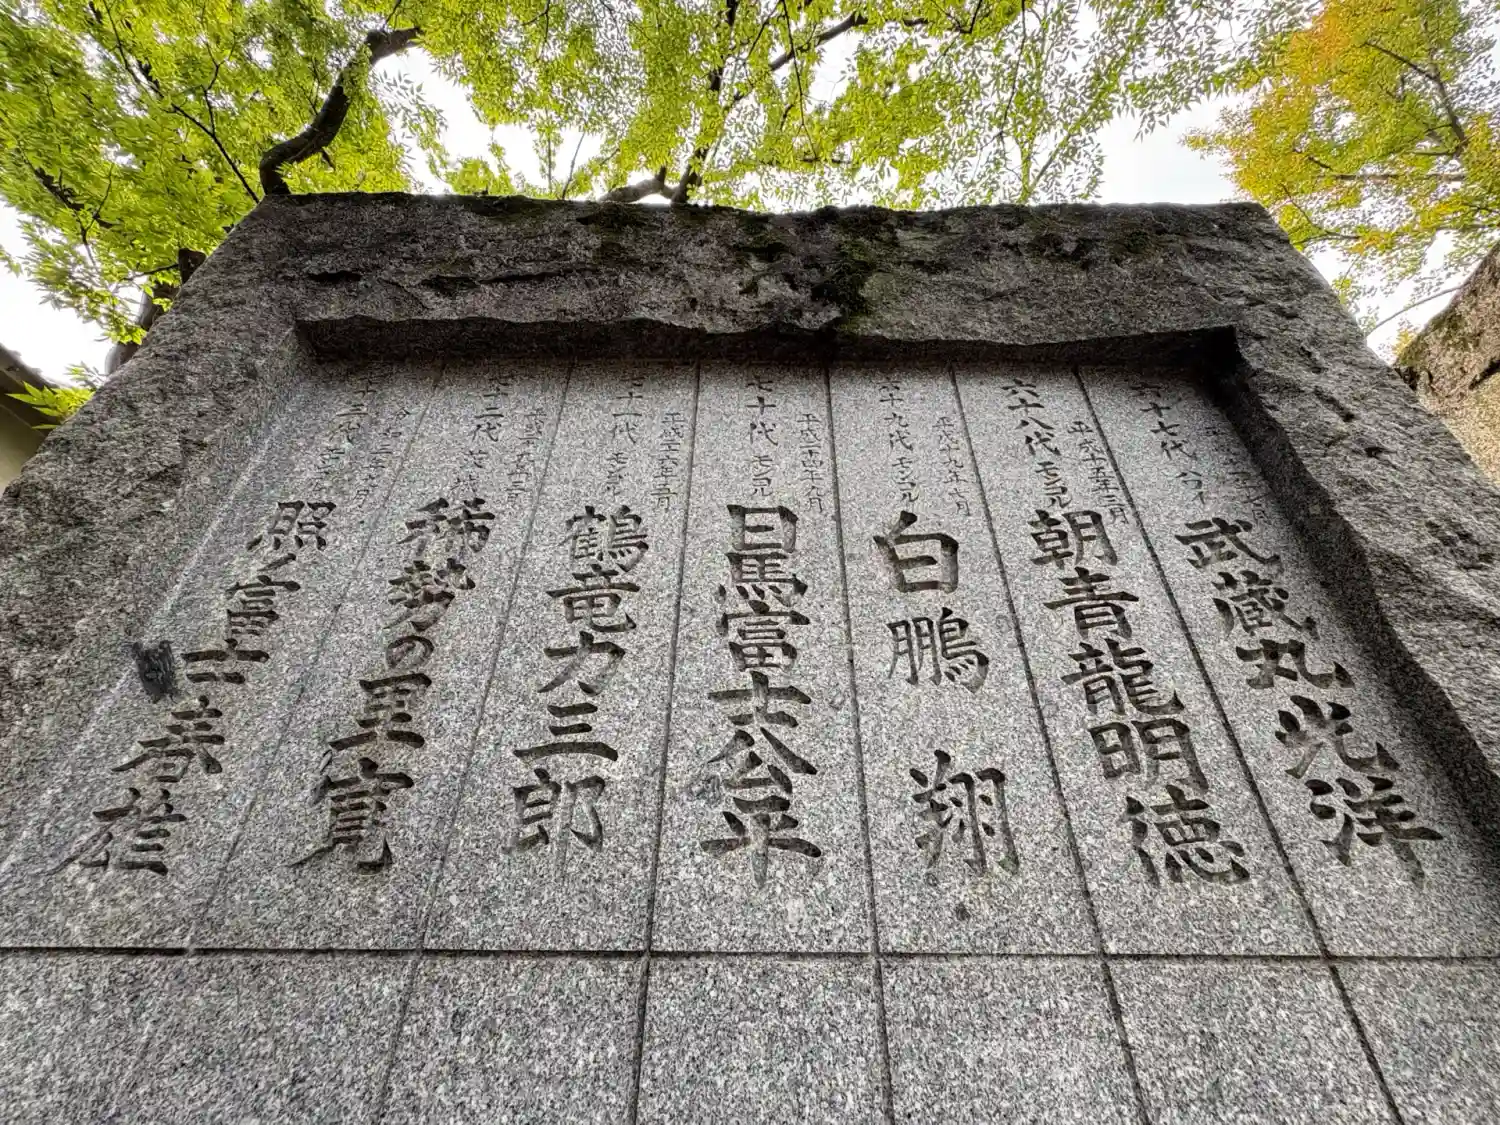 六十七代 ハワイ 武蔵丸光洋
平成十五年三月
六十八代 モンゴル 朝青龍明徳
平成十九年七月
六十九代 モンゴル 白鵬翔
平成二十四年
七十代 モンゴル 日馬富士公平
平成二十六年
七十一代 モンゴル 鶴竜力三郎
平成二十九年三月
七十二代 茨城 稀勢の里寛
令和三年九月
七十三代 モンゴル 照ノ富士春雄